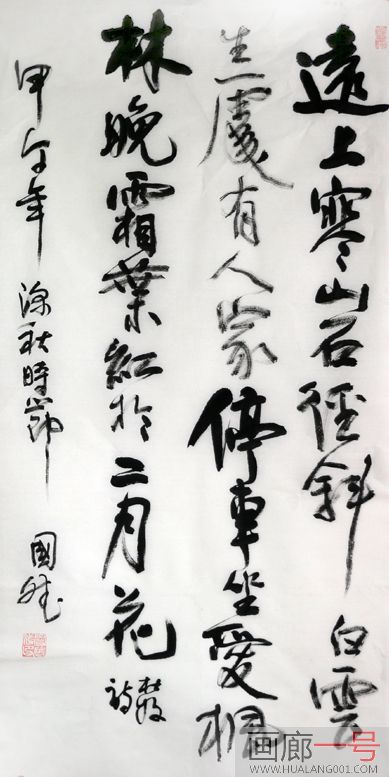 遠上寒山石徑斜白雲
生處有人家停車坐愛楓
林晚霜葉紅於二月花
杜牧
詩
甲午年深秋時節
國
画廊一号
WWW.HUALANG001.COM